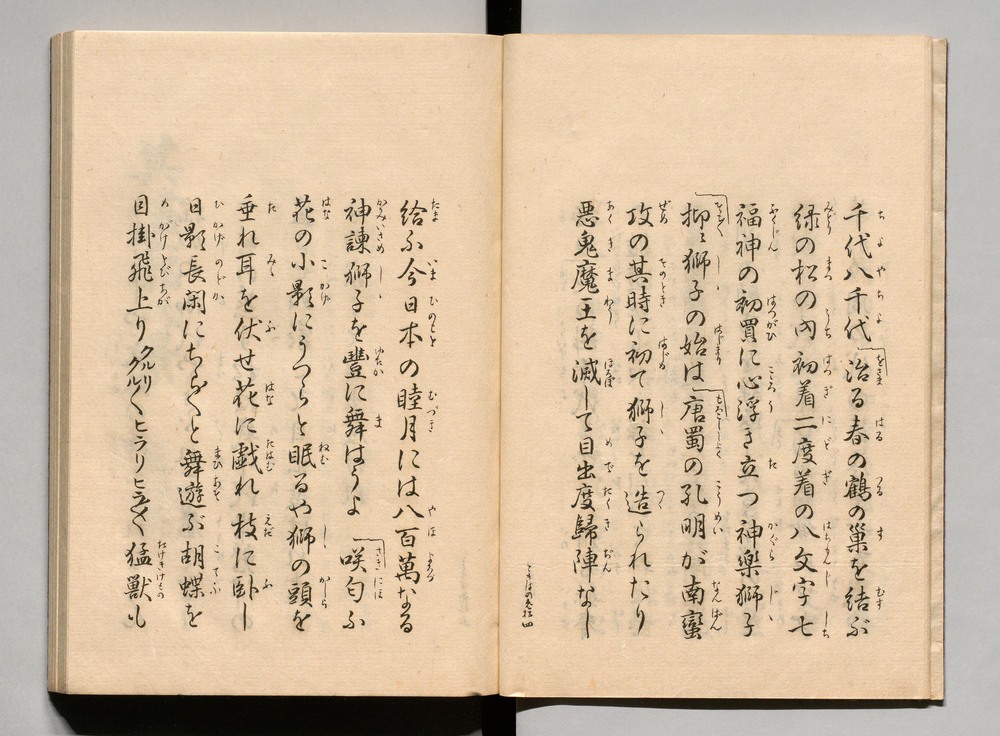 千代八千代治る春の鶴の巣を結ぶ
緑の松の内初着二度着の八文字七
福神の初買に心浮き立つ神楽獅子
抑〻獅子の始は唐蜀の孔明が南蠻
攻の其時に初て獅子を造られたり
悪鬼魔王を滅して目出度歸陣なし
給ふ今日本の睦月には八百萬なる
神諫獅子を豐に舞はうよ咲匂ふ
花の小影にうつらと眠るや獅の頭を
垂れ耳を伏せ花に戯れ枝に臥し
日影長閑にちら〱と舞遊ぶ胡蝶を
目掛飛上りクルリクル〱ヒラリヒラ〱猛獣も